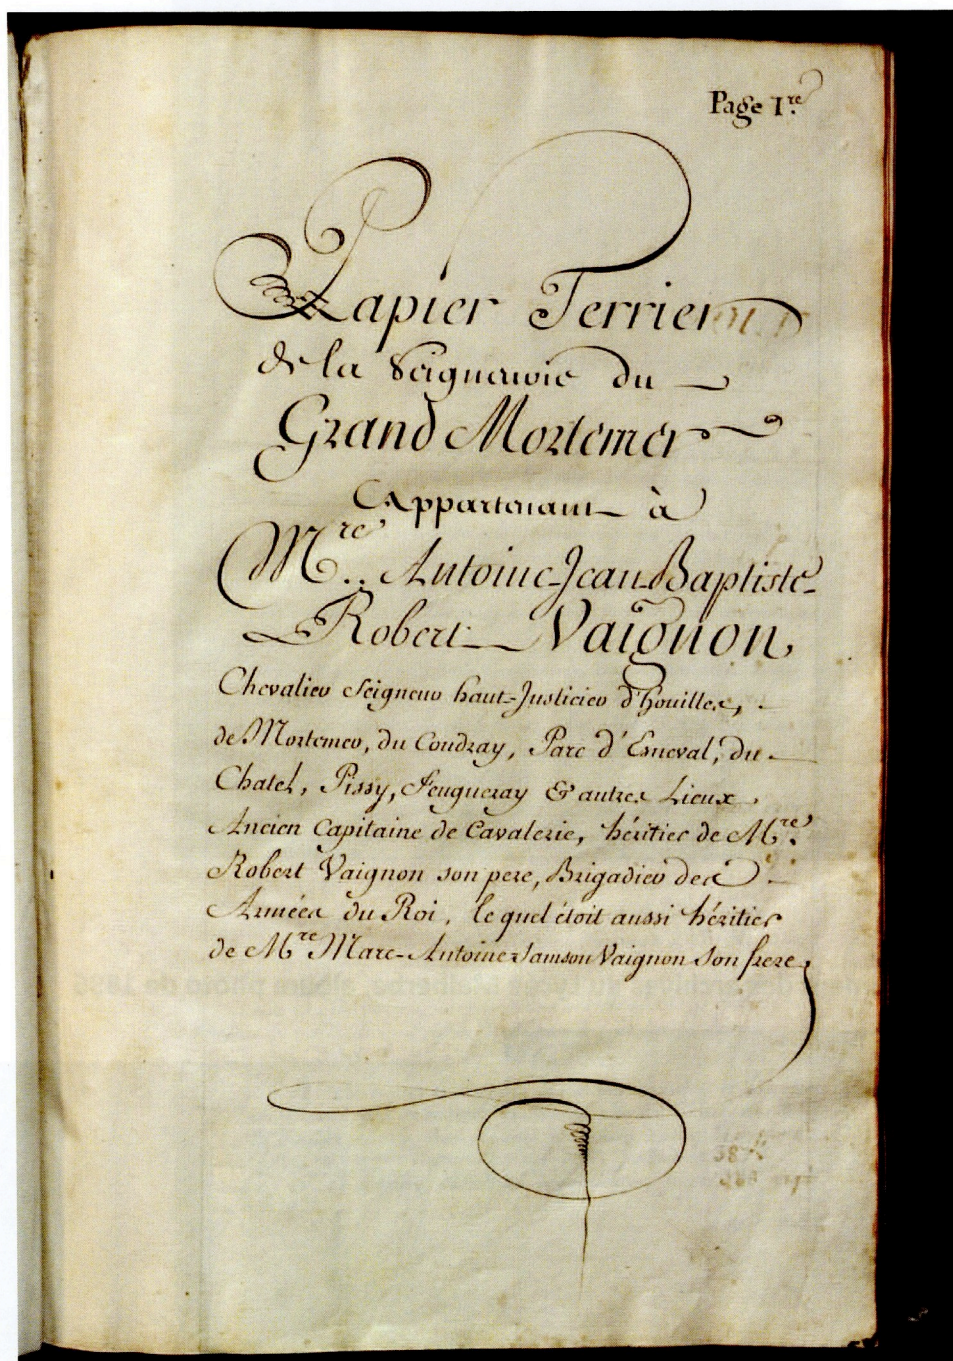 Page 1.re
Papier Terrier
de la Seigneurie du
Grand Mortemer
Appartenant à
M.re Antoine-Jean-Baptiste-
Robert Vaignon,
Chevalier Seigneur haut-Justicier d'houilles,
de Mortemer, du Coudray, Parc d'Esneval, du
Chatel, Pissy, Feugueray & autres Lieux,
Ancien Capitaine de Cavalerie, héritier de M.re
Robert Vaignon son pere, Brigadier des
Armées du Roi, le quel étoit aussi héritier
de M.re Marc-Antoine Samson Vaignon son frere,